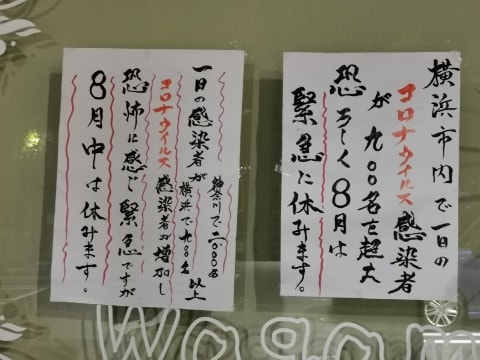 横浜市内で一日の
コロナウイルス感染者
が九〇〇名を超え
恐ろしく8月は
緊急に休みます。
一日の感染者が
神奈川で二〇〇〇名
横浜で九〇〇名
以上
コロナウイルス感染者が増加し
恐怖に感じ緊急ですが
8月中は休みます。